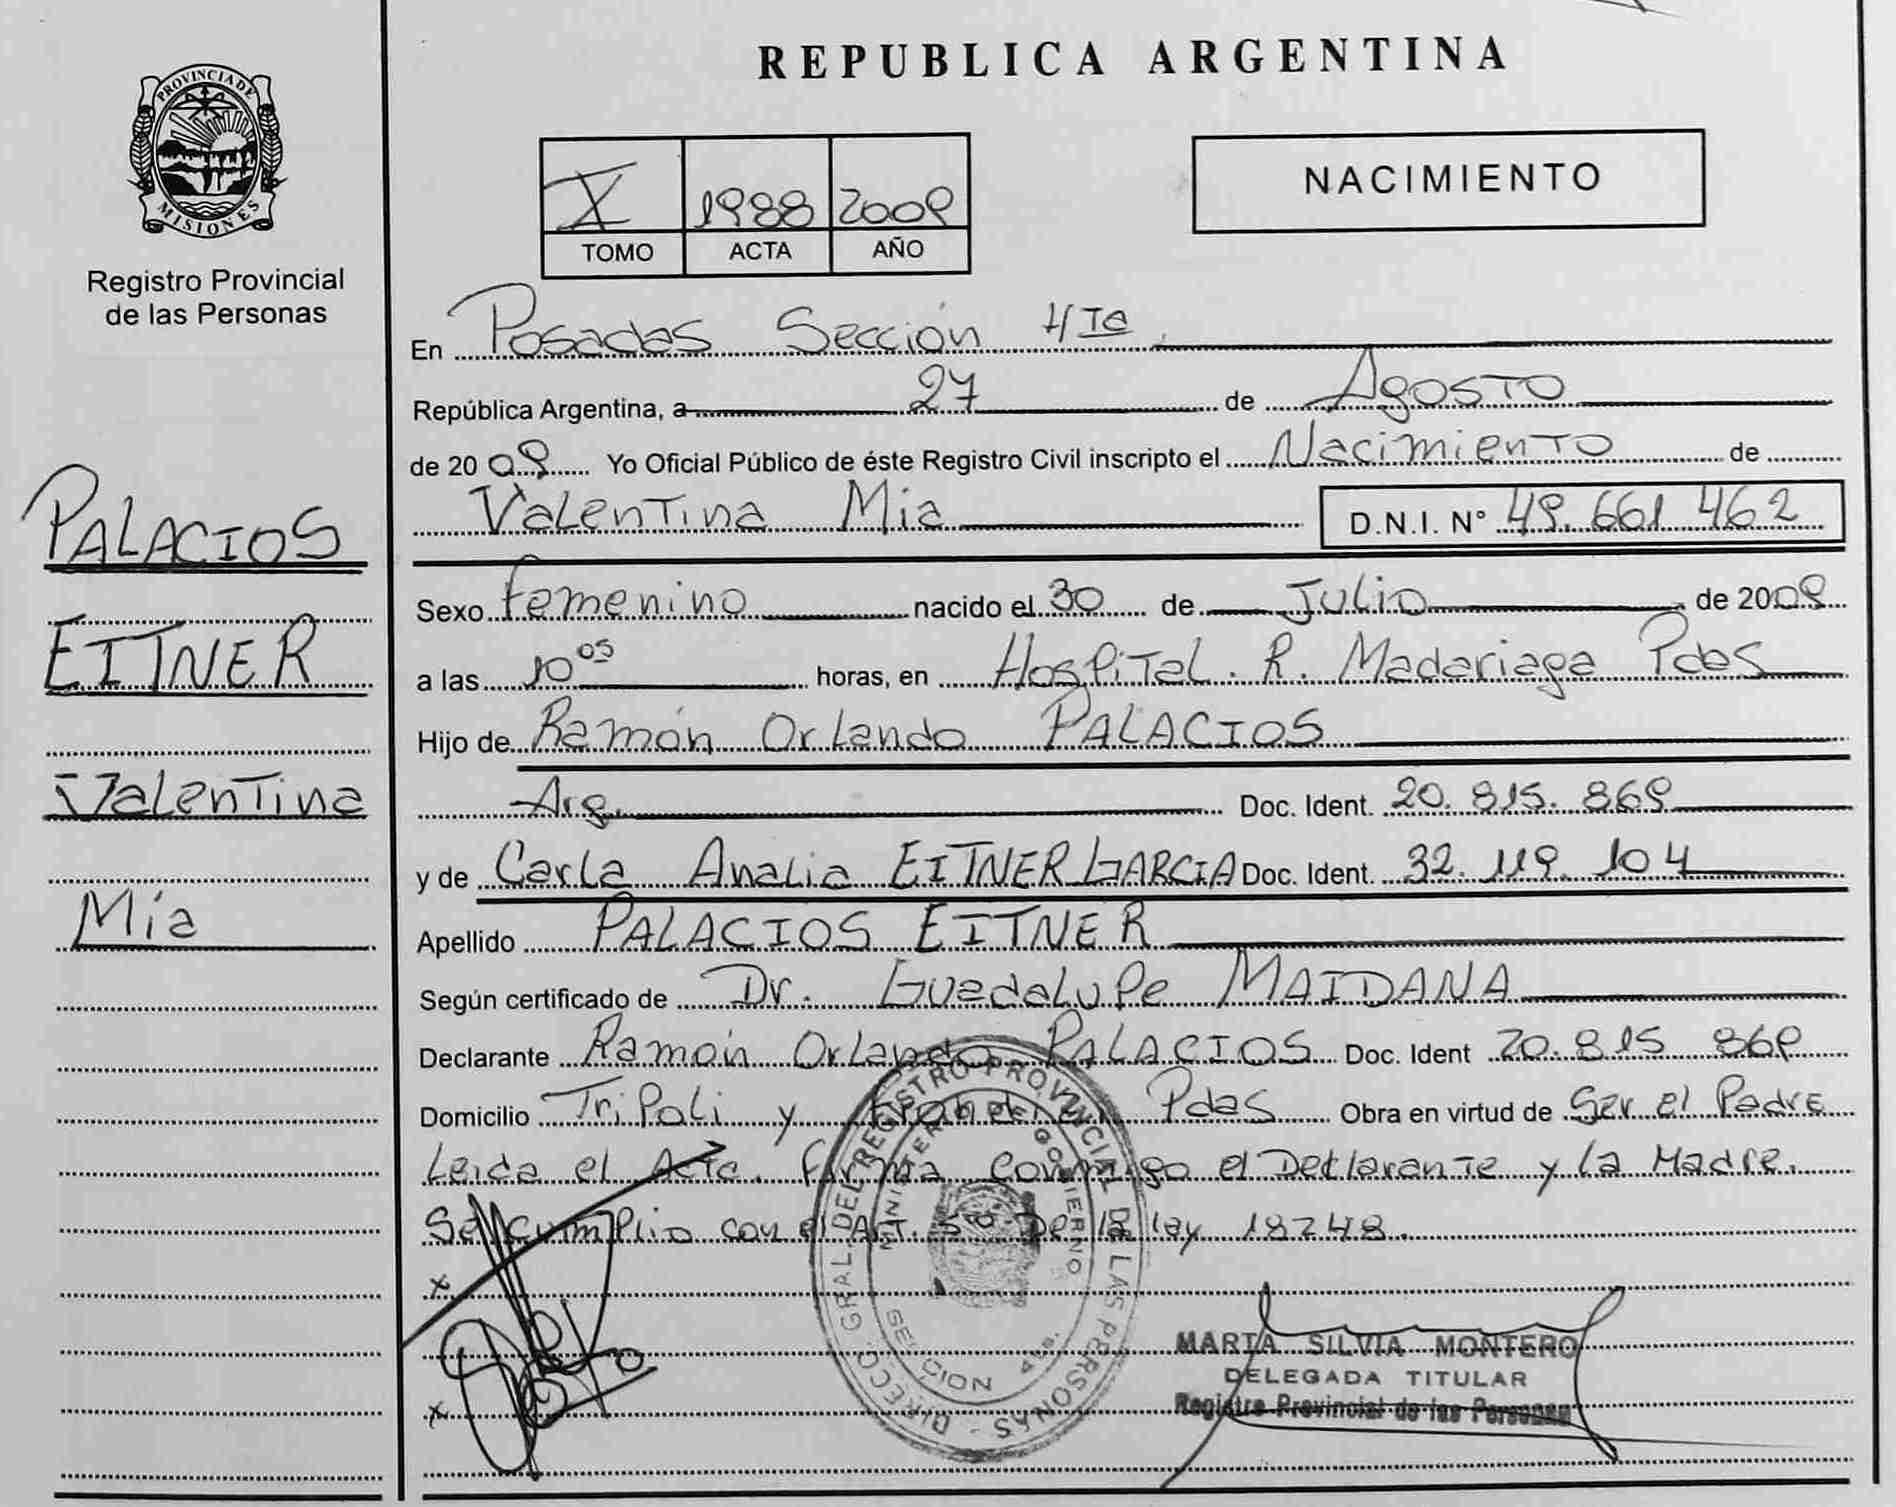 PROVINCIA DE
MISIONES
Registro Provincial
de las Personas
PALACIOS
EITNER
Valentina
Mía
REPUBLICA ARGENTINA
X 1988 2009
TOMO ACTA AÑO
NACIMIENTO
En Posadas Sección 4ta
República Argentina, a 27 de Agosto
de 2009 Yo Oficial Público de éste Registro Civil inscripto el Nacimiento de
Valentina Mía D.N.I. N° 49.661.462
Sexo Femenino nacido el 30 de Julio de 2009
a las 10 05 horas, en Hospital. R. Madariaga Pdas
Hijo de Ramón Orlando PALACIOS
Arg. Doc. Ident. 20.815.869
y de Carla Analia EITNER GARCIA Doc. Ident. 32.119.104
Apellido PALACIOS EITNER
Según certificado de Dr. Guadalupe MAIDANA
Declarante Ramón Orlando PALACIOS Doc. Ident 20.815 869
Domicilio Tripoli y Pdas Obra en virtud de Ser el Padre
Leida el Acta. firma conmigo el Declarante y la Madre.
Se cumplio con el Art. 5° De la ley 18248.
x
x
DIRECC. GRAL. DEL REGISTRO PROVINCIAL DE LAS PERSONAS
MINISTERIO DE GOBIERNO
SECCION 4ta.
MARTA SILVIA MONTERO
DELEGADA TITULAR
Registro Provincial de las Personas